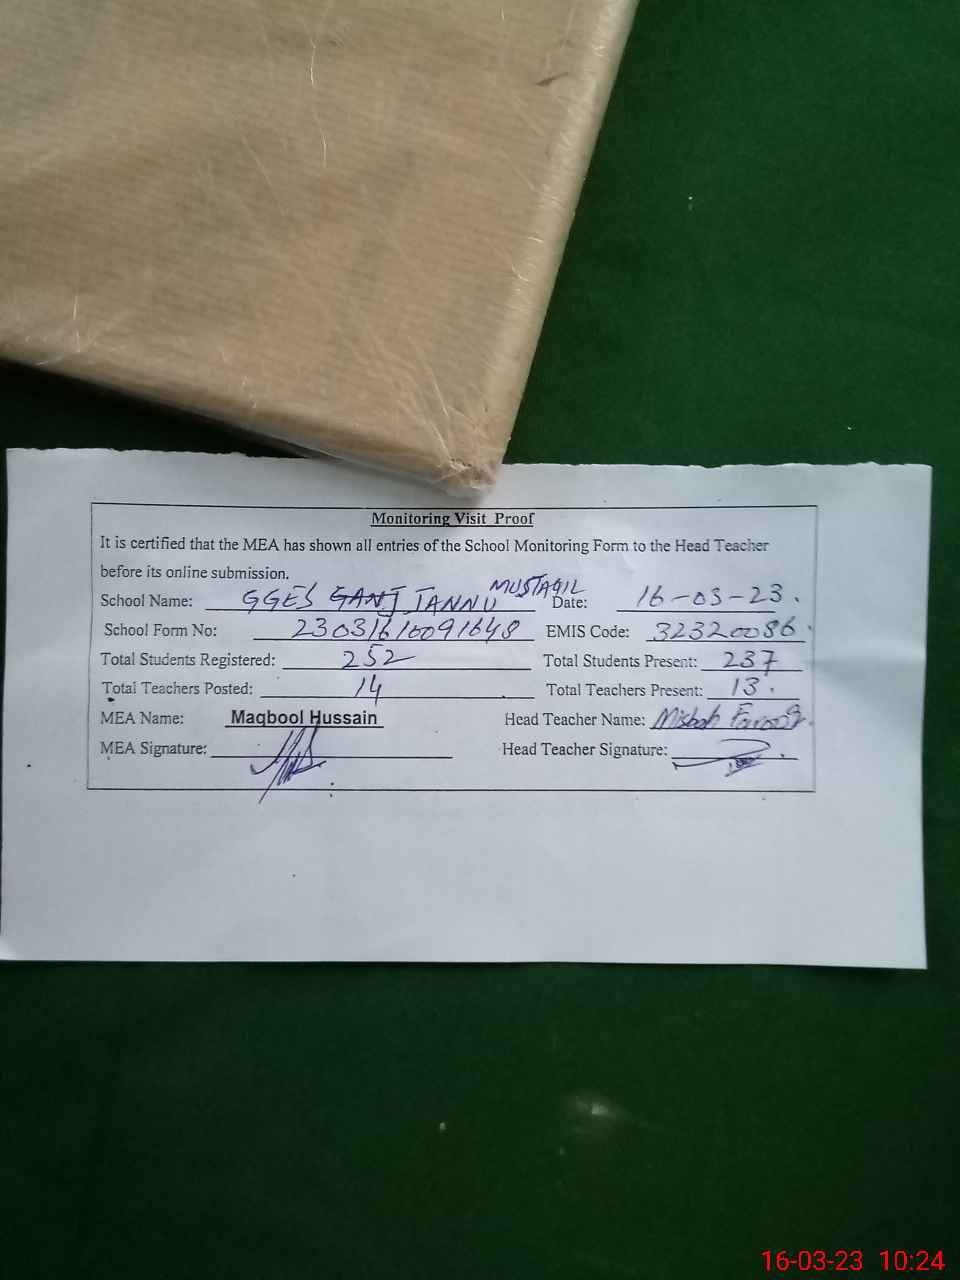 Monitoring Visit Proof
It is certified that the MEA has shown all entries of the School Monitoring Form to the Head Teacher
before its online submission.
School Name: GGES GANJ JANNU MUSTAQIL Date: 16-03-23.
School Form No: 23031610091648 EMIS Code: 32320086.
Total Students Registered: 252 Total Students Present: 237
Total Teachers Posted: 14 Total Teachers Present: 13.
MEA Name: Maqbool Hussain Head Teacher Name: Misbah Farooq.
MEA Signature: Head Teacher Signature:
16-03-23 10:24